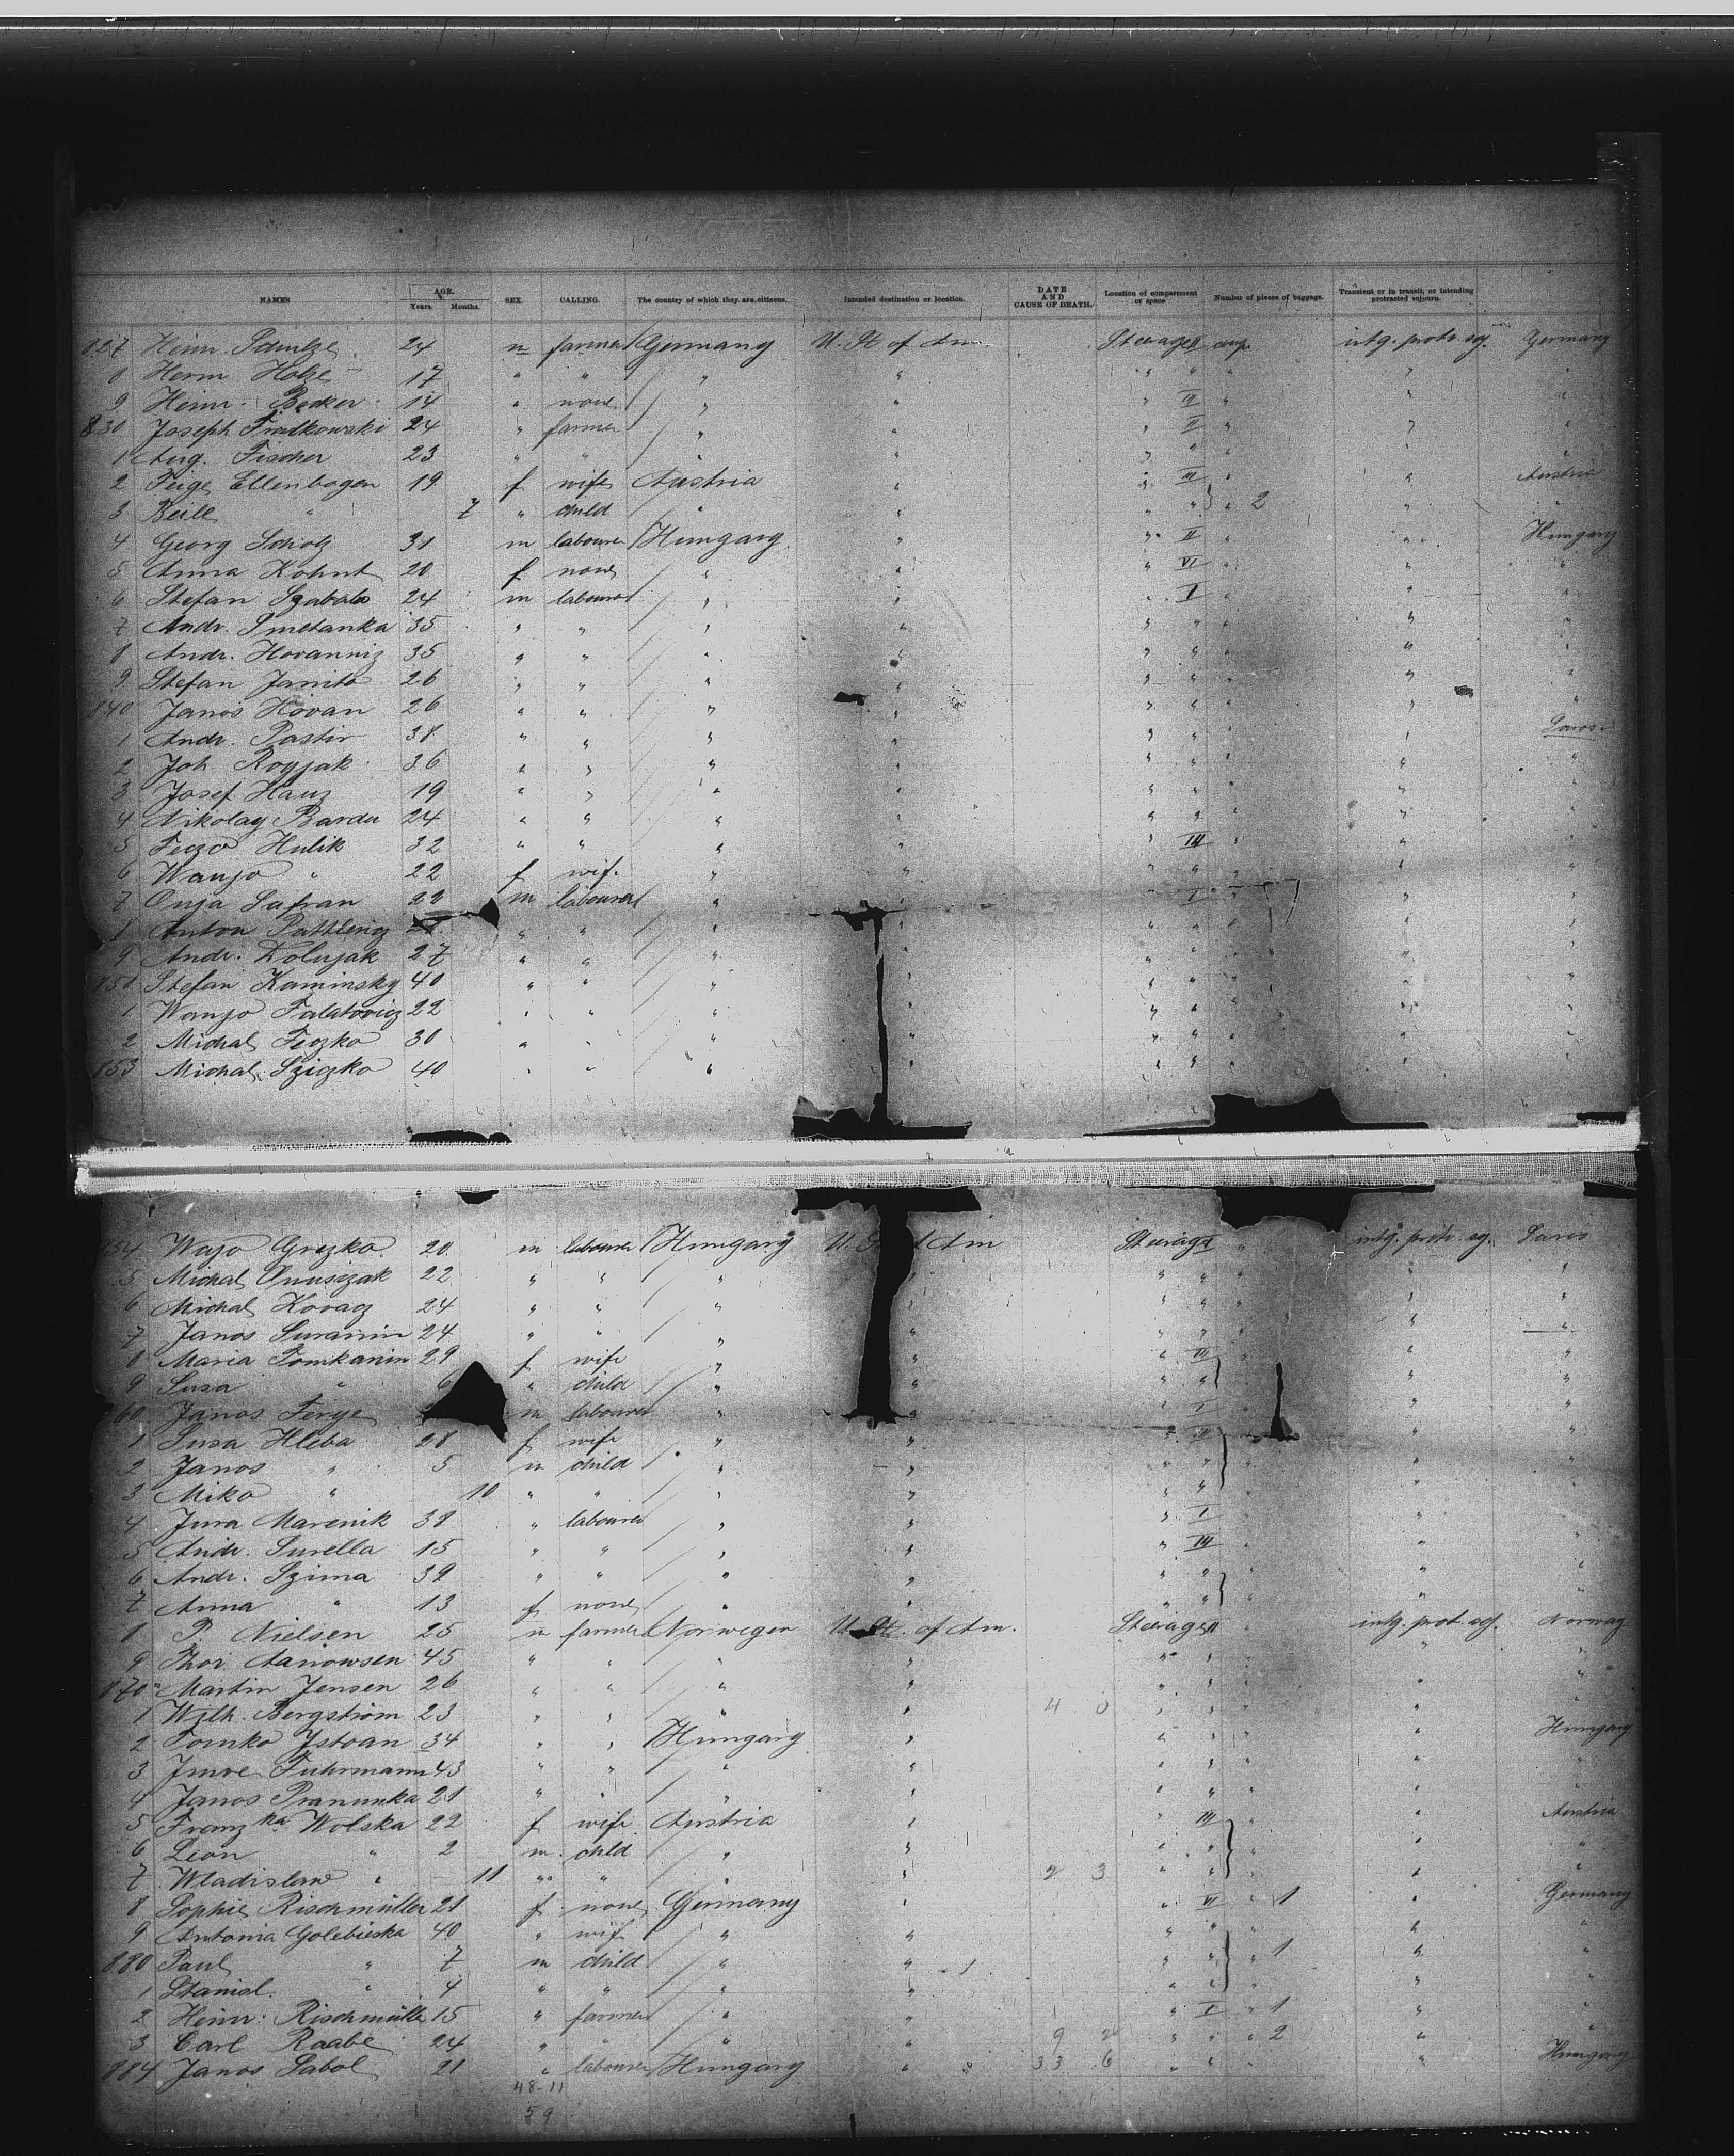 NAMES AGE. Years. Months. SEX. CALLING. The country of which they are citizens. Intended destination or location. DATE AND CAUSE OF DEATH. Location of compartment or space Number of pieces of baggage. Transient or in transit, or intending protracted sojourn.
827 Heinr. 24 m farmer Germany U. St. of Am. Steerage II intg. protr. soj. Germany
8 Herm. Holze 17 " " " " " " " " "
9 Heinr. Becker 14 " none " " " " " "
830 Joseph Fiatkowski 24 " farmer " " " II " " "
1 Aug. Fischer 23 " " " " " " " " "
2 Feige Ellenbogen 19 f wife Austria " " III " " Austria
3 Beile " 7 " child " " " " " 2 " "
4 Georg Scholz 31 m labourer Hungary " " II " " Hungary
5 Anna Kohut 20 f none " " " VI " " "
6 Stefan 24 m labourer " " " I " " "
7 Andr. Smetanka 35 " " " " " " " " "
8 Andr. 35 " " " " " " " " "
9 Stefan 26 " " " " " " " " "
840 Janos Hovan 26 " " " " " " " " "
1 Andr. Pastir 38 " " " " " " " " Saros
2 Joh. 36 " " " " " " " " "
3 Josef Hauz 19 " " " " " " " " "
4 Nikolay Bardu 24 " " " " " " " " "
5 Feczo Hulik 32 " " " " " III " " "
6 Wanjo " 22 f wife " " " " " " "
7 Onja Safran 22 m labourer " " " I " " "
8 Anton " " " " " " " " "
9 Andr. Dolujak 27 " " " " " " " " "
850 Stefan Kaminsky 40 " " " " " " " " "
1 Wanjo Falatovicz 22 " " " " " " " " "
2 Michal Feczko 30 " " " " " " " " "
853 Michal Sziczko 40 " " " " " " " " "
854 Wajo Grezko 20 m labourer Hungary U. St. of Am Steerage I " intg. protr. soj. Saros
5 Michal 22 " " " " " " " " "
6 Michal Kovacz 24 " " " " " " " " "
7 Janos 24 " " " " " " " " "
8 Maria Tomkanin 29 f wife " " " III " " "
9 Susa " 6 " child " " " " " " "
860 Janos Ferge m labourer " " " I " " "
1 Susa Hleba 28 f wife " " " III " " "
2 Janos " 5 m child " " " " " " "
3 Miko " 10 " " " " " " " " "
4 Jura Marenik 38 " labourer " " " I " " "
5 Andr. Surella 15 " " " " " III " " "
6 Andr. Szima 39 " " " " " " " " "
7 Anna " 13 f none " " " " " " "
8 P. Nielsen 25 m farmer Norwegen U. St. of Am. Steerage II " intg. prot. soj. Norway
9 Thor. Aanowsen 45 " " " " " " " " "
870 Martin Jensen 26 " " " " " " " " "
1 Wilh. Bergström 23 " " " " 4 0 " " " " "
2 Tomko Istvan 34 " " Hungary " " " " " Hungary
3 Imre Fuhrmann 43 " " " " " " " " "
4 Janos 21 " " " " " " " " "
5 Franz ka Wolska 22 f wife Austria " " III " " Austria
6 Leon " 2 m child " " " " " " "
7 Wladislaw " 11 " " " " 2 3 " " " " "
8 Sophie Rischmüller 21 f none Germany " " VI " 1 " Germany
9 Antonia Golebieska 40 " wife " " " " " "
880 Paul " 7 m child " " 1 " " " 1 " "
1 Stanisl. " 4 " " " " " " " " "
2 Heinr. Rischmüller 15 " farmer " " " I " 1 " "
3 Carl Raabe 24 " " " " 9 2 " " " 2 " "
884 Janos Sabol 21 " labourer Hungary " 33 6 " " " Hungary
48-11
59